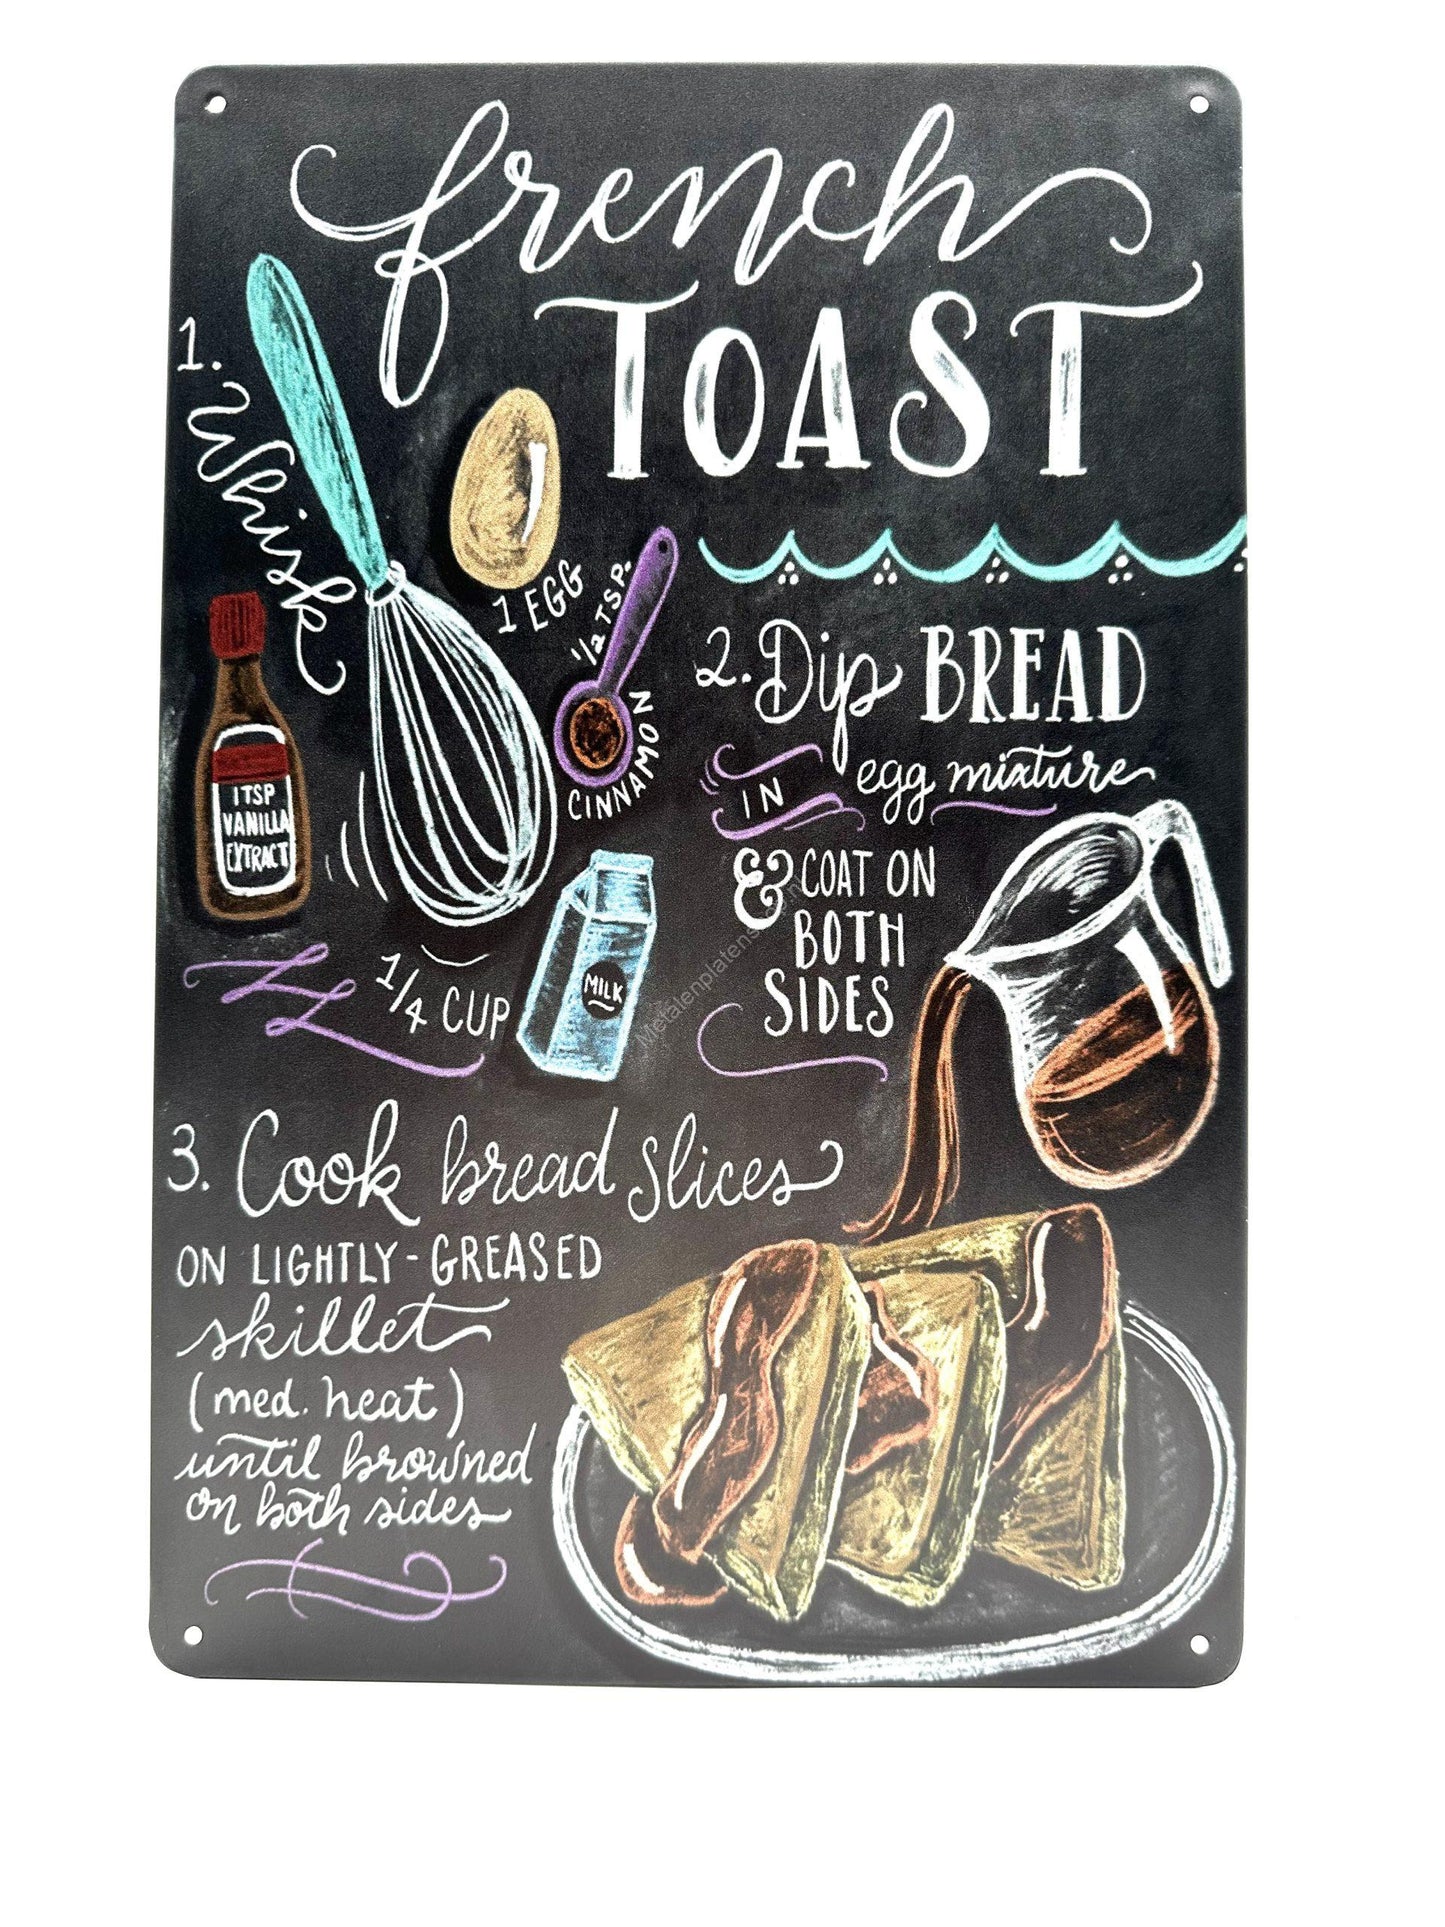 french
TOAST
1.
Whisk
1 EGG
1/2 TSP.
CINNAMON
1TSP
VANILLA
EXTRACT
1/4 CUP
MILK
2. Dip BREAD
IN egg mixture
& COAT ON
BOTH
SIDES
3. Cook bread slices
ON LIGHTLY-GREASED
skillet
(med. heat)
until browned
on both sides